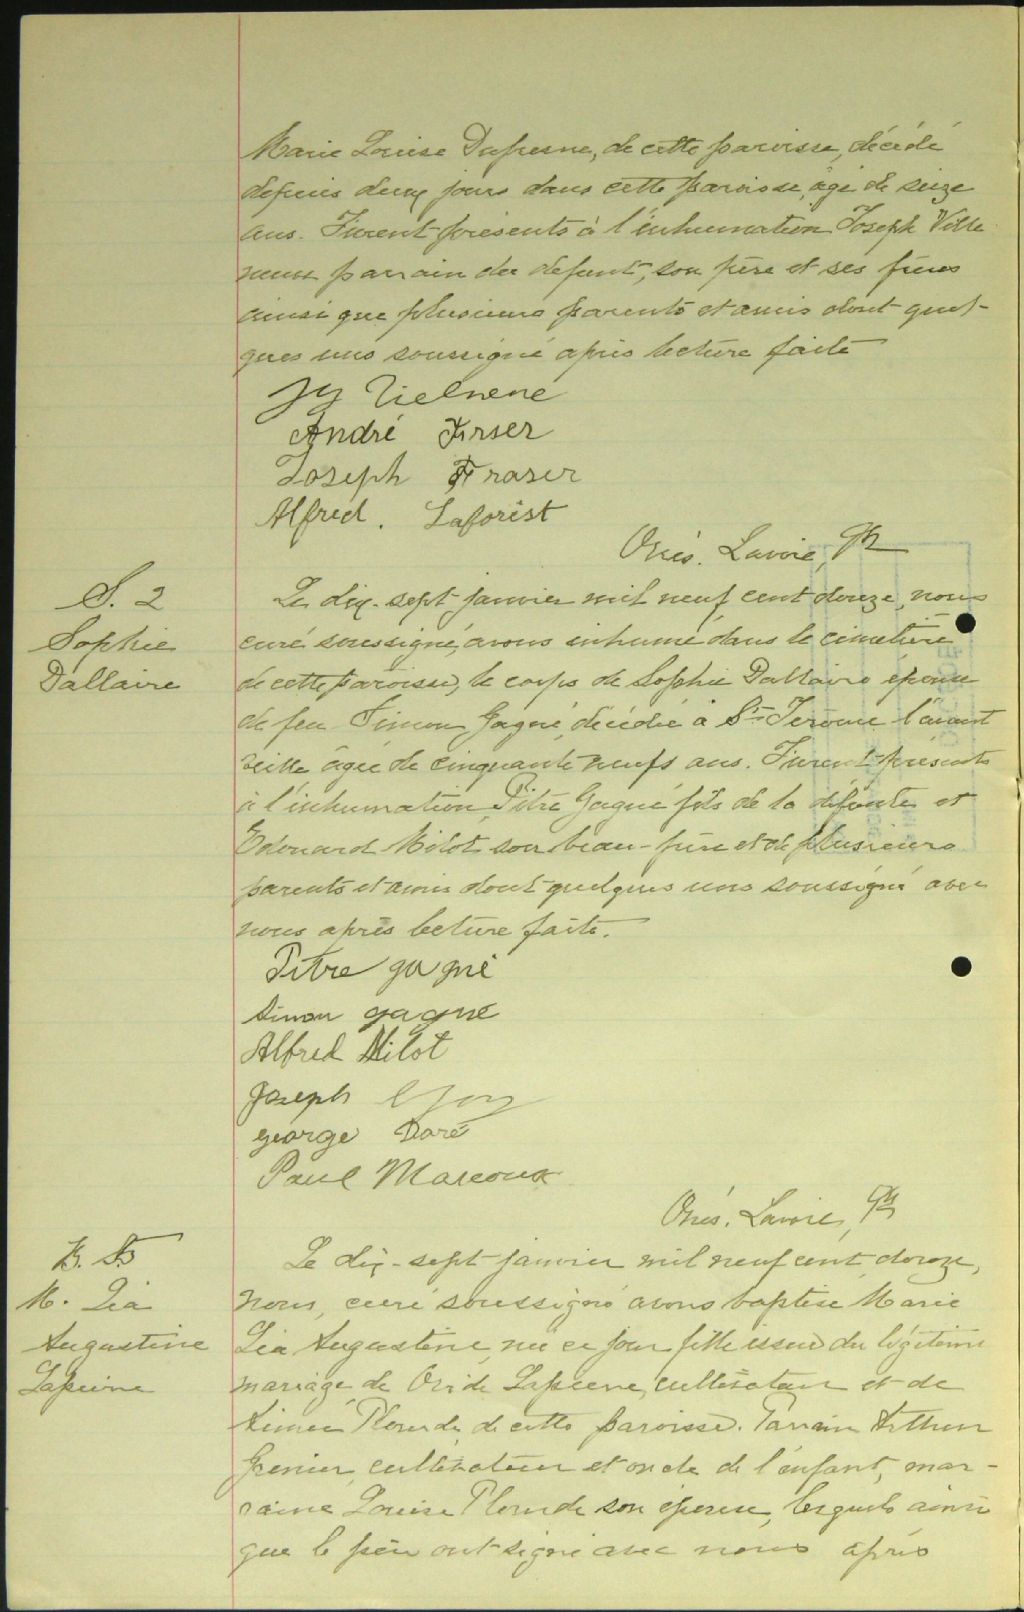 Marie Louise Dufresne, de cette paroisse, décédé
depuis deux jours dans cette paroisse, âgé de seize
ans. Furent présents à l'inhumation Joseph Ville-
neuve parrain du defunt, son père et ses frères
ainsi que plusieurs parents et amis dont quel-
ques uns soussigné après lecture faite
André Frser
Joseph Fraser
Alfred. Laforist
Onés. Lavoie, Ptr
S. 2
Sophie
Dallaire
Le dix-sept janvier mil neuf cent douze, nous
curé soussigné, avons inhumé dans le cimetière
de cette paroisse, le corps de Sophie Dallaire épouse
de feu Simon Gagné, décédée à St-Jerôme l'avant
veille âgée de cinquante neufs ans. Furent présents
à l'inhumation, Pitre Gagné fils de la défunte et
Edouard Milot son beau-frère et de plusieurs
parents et amis dont quelques uns soussigné avec
nous après lecture faite.
Pitre gagné
Simon gagné
Alfred Milot
Joseph
george Doré
Paul Marcoux
Onés. Lavoie, Ptr
B. 5
M. Léa
Augustine
Lapierre
Le dix-sept janvier mil neuf cent douze,
nous, curé soussigné avons baptisé Marie
Léa Augustine, née ce jour fille issue du légitime
mariage de Ovide Lapierre, cultivateur et de
Aimée Plourde, de cette paroisse. Parrain Arthur
Grenier, cultivateur et oncle de l'enfant, mar-
raine Louise Plourde son épouse, lesquels ainsi
que le père ont signé avec nous après